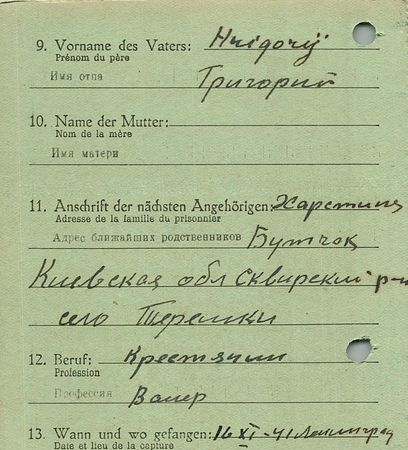 9. Vorname des Vaters: Hrigorij
Prénom du père
Имя отца Григорий
10. Name der Mutter:
Nom de la mère
Имя матери
11. Anschrift der nächsten Angehörigen: Харетина
Adresse de la famille du prisonnier
Адрес ближайших родственников Бутчок
Киевская обл Сквирский р-н
село Терешки
12. Beruf: Крестячин
Profession
Профессия Bauer
13. Wann und wo gefangen: 16 XI-41 Ленинград
Date et lieu de la capture